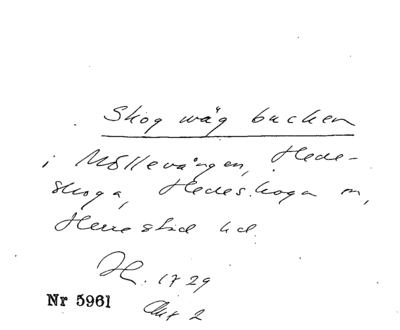 Skog wäg backen
i Möllevången, Hede-
skoga, Hedeskoga sn,
Herrestad hd.
H. 1729
Akt 2
Nr 5961